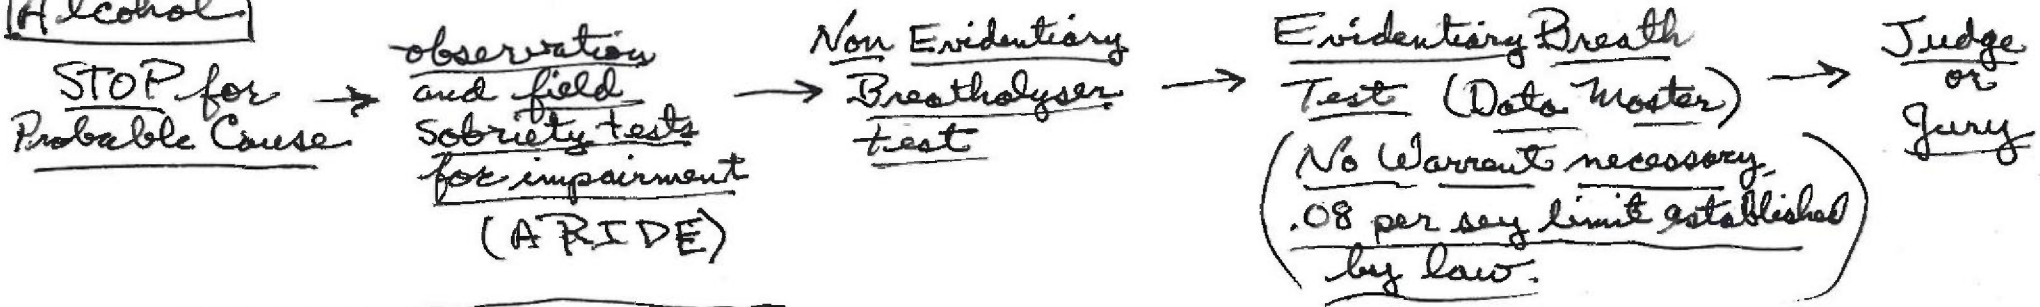 Alcohol
STOP for
Probable Cause
→
observation
and field
sobriety tests
for impairment
(ARIDE)
→
Non Evidentiary
Breatholyser
test
→
Evidentiary Breath
Test (Data Master)
(No Warrent necessary,
.08 per sey limit established
by law.)
→
Judge
or
Jury